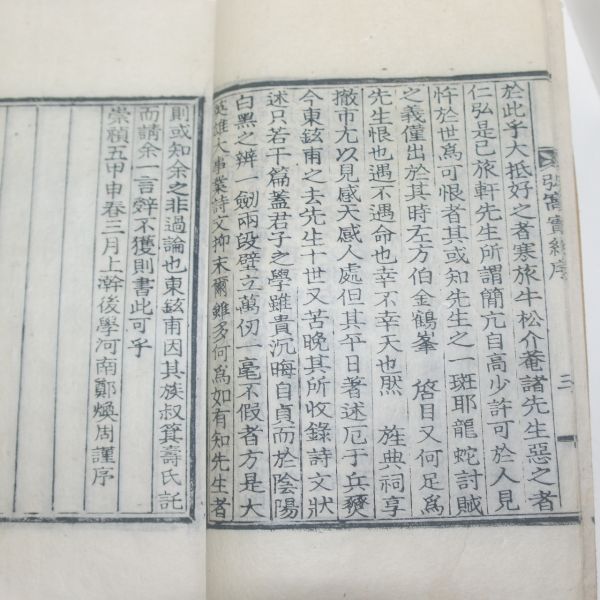 於此乎大抵好之者寒旅牛松介菴諸先生惡之者
仁弘是已旅軒先生所謂簡亢自高少許可於人見
忤於世爲可恨者其或知先生之一斑耶龍蛇討賊
之義僅出於其時左方伯金鶴峯 啓目又何足爲
先生恨也遇不遇命也幸不幸天也然 旌典祠享
撤市尤以見感天感人處但其平日著述厄于兵燹
今東鉉甫之去先生十世又苦晚其所收錄詩文狀
述只若干篇蓋君子之學雖貴沉晦自貞而於陰陽
白黑之辨一劒兩段壁立萬仞一毫不假者方是大
英雄大事業詩文抑末爾雖多何爲如有知先生者
則或知余之非過論也東鉉甫因其族叔箕壽氏託
而請余一言辭不獲則書此可乎
崇禎五甲申春三月上澣後學河南鄭煥周謹序
實紀序
三